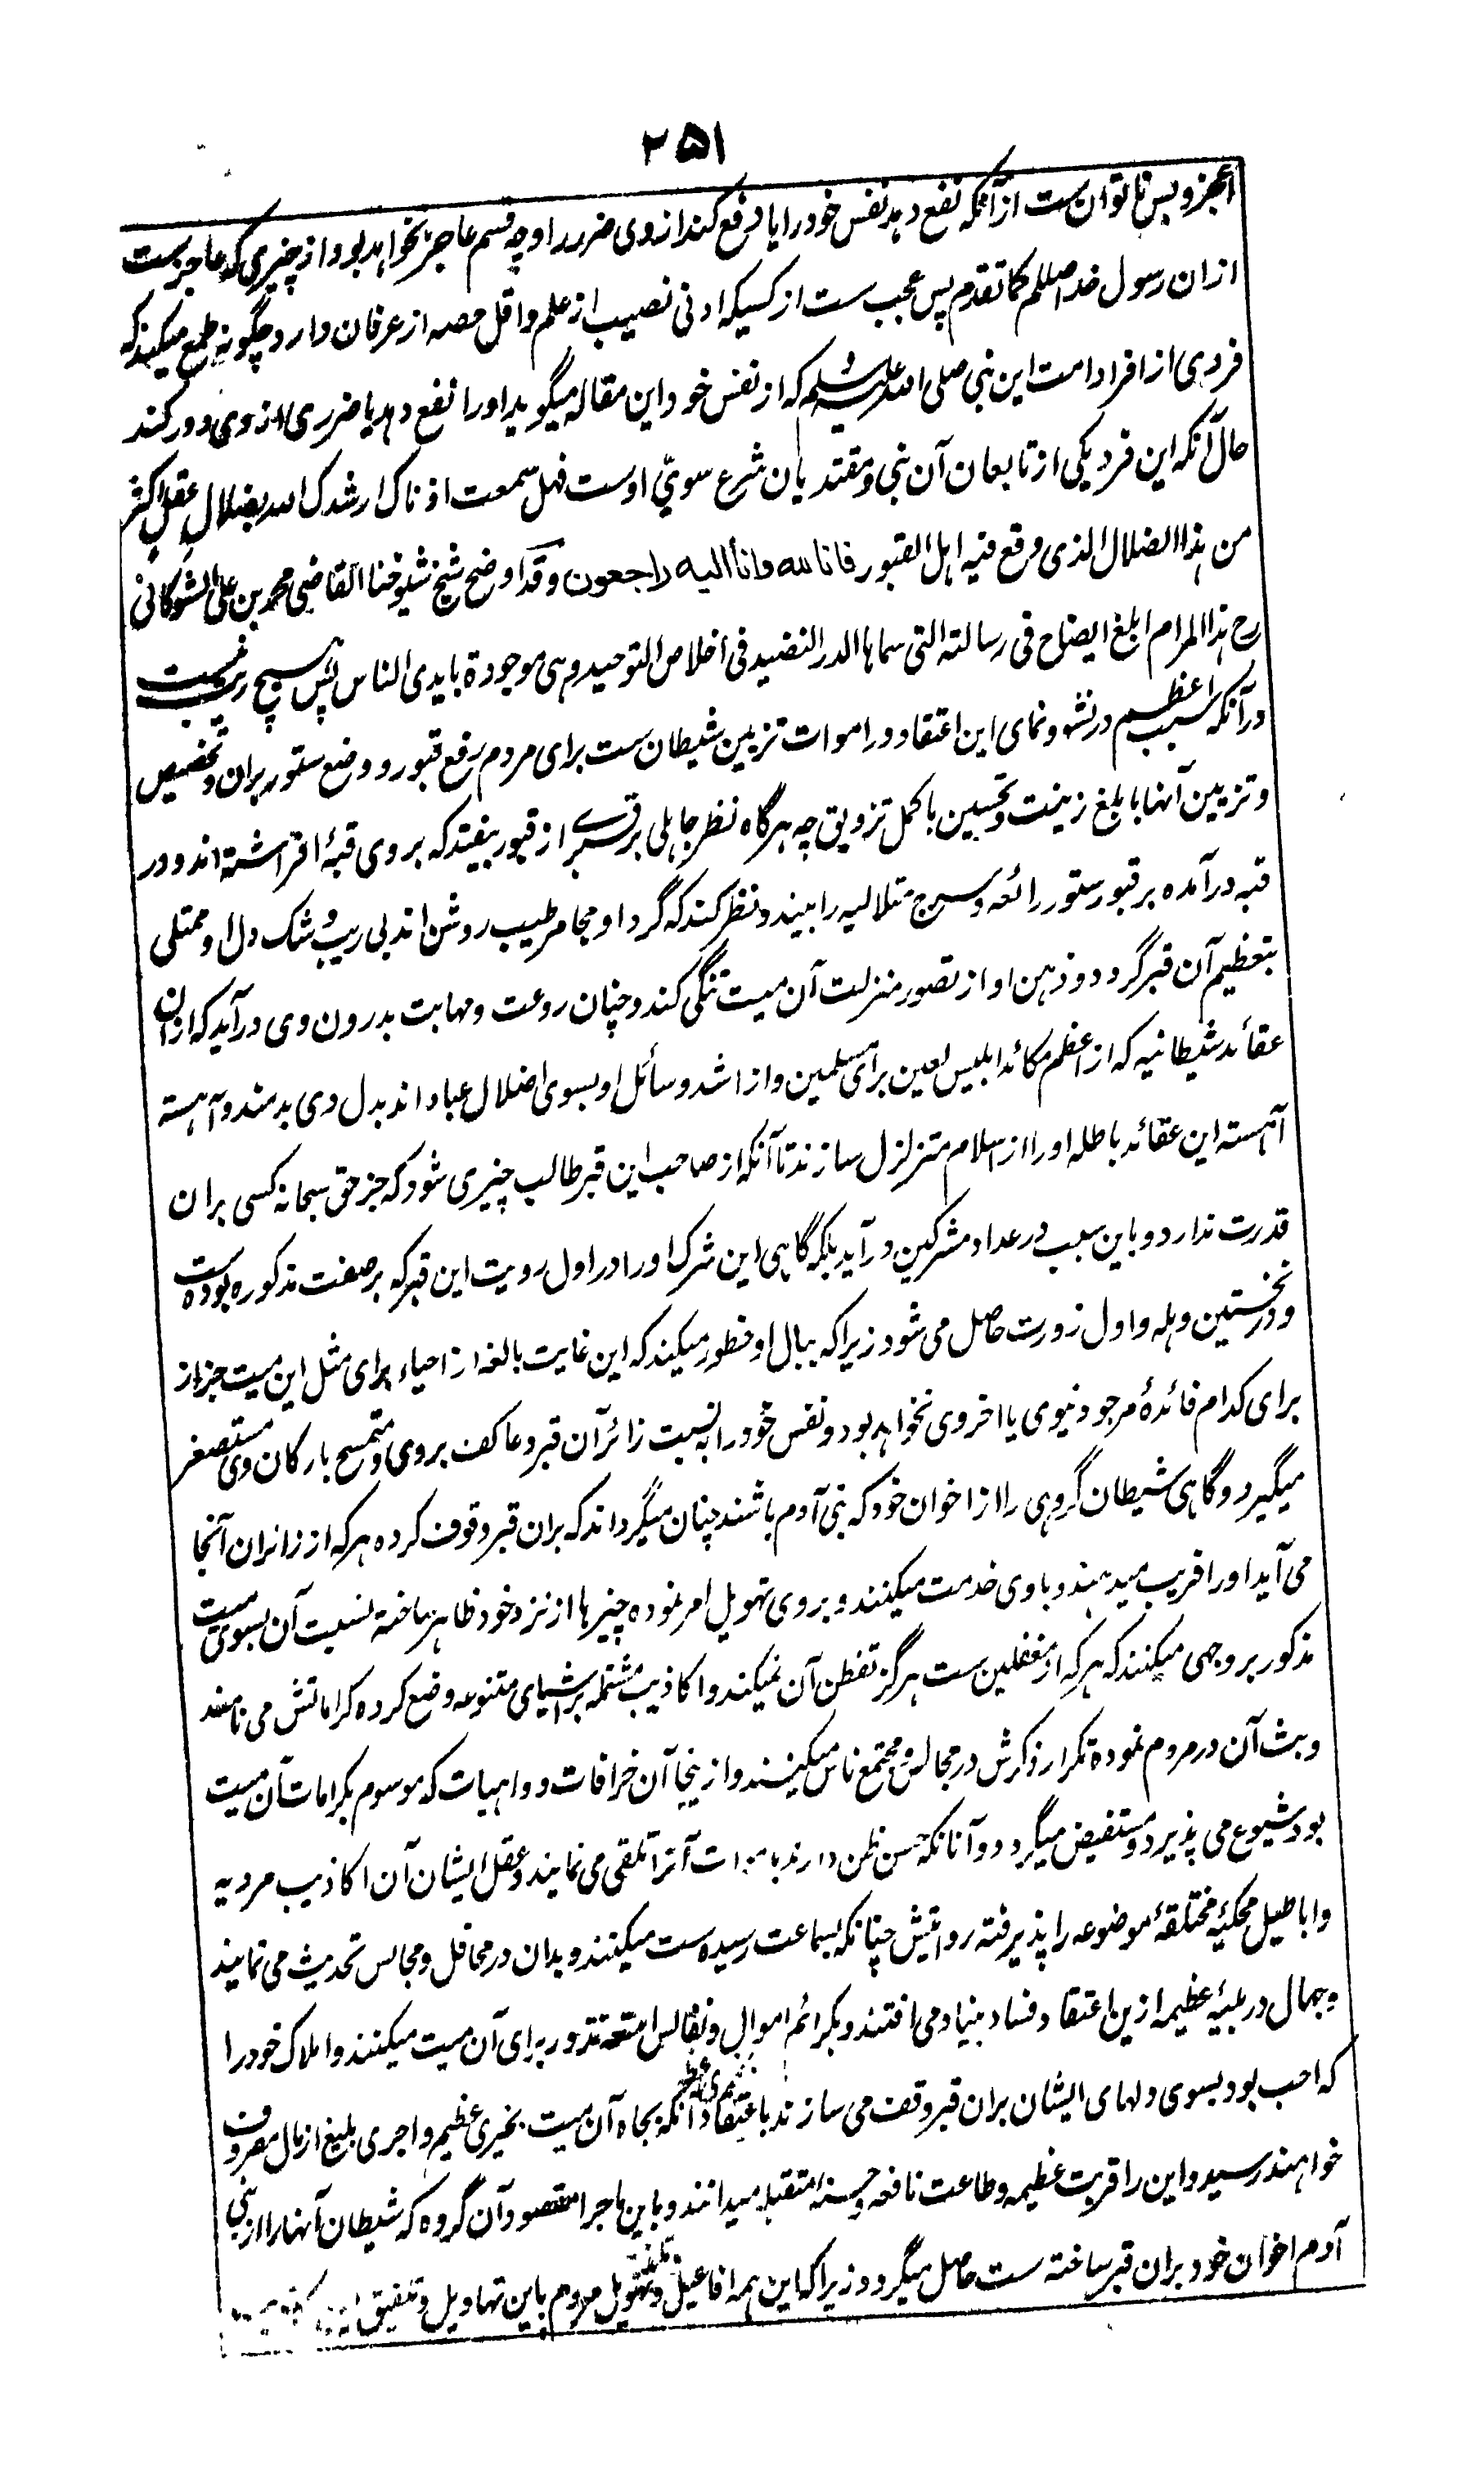 ۲۵۱
اعجز و بس ناتوان ست از آنکه نفع دهد نفس خود را یا دفع کند از وی ضرر را و چه قسم عاجز نخواهد بود از چیزی که عاجز ست
ازان رسول خدا صللم کما تقدم پس عجب ست از کسیکه ادنی نصیب از علم و اقل حصه از عرفان دارد چگونه طمع میکند که
فردی از افراد امت این نبی صلی الله علیه وسلم که از نفس خود این مقاله میگوید او را نفع دهد یا ضرری از وی دور کند
حال آنکه این فرد یکی از تابعان آن نبی و مقتدیان شرع سویّ اوست فهل سمعت اذناک ارشدک الله بضلال عقل اکثر
من هذا الضلال الذی وقع فیه اهل القبور فانا لله وانا الیه راجعون وقد اوضح شیخ شیوخنا القاضی محمد بن علی الشوکانی
رح هذا المرام ابلغ ایضاح فی رسالته التی سماها الدر النضید فی اخلاص التوحید وهی موجودة بایدی الناس پس هیچ ریب نیست
در آنکه سبب اعظم در نشو و نمای این اعتقاد در اموات تزیین شیطان ست برای مردم رفع قبور و وضع ستور بران و تجصیص
و تزیین آنها بابلغ زینت و تحسین باکمل تزویق چه هرگاه نظر جاهلی بر قبرے از قبور بیفتد که بروی قبهٔ افراشته اند و در
قبه درآمده بر قبور ستور رائعه و سرج متلالیه را بیند و نظر کند که گرد او مجامر طیب روشن اند بی ریب و شک دل او ممتلی
بتعظیم آن قبر گردد و ذهن او از تصور منزلت آن میت تنگی کند و چنان روعت و مهابت بدرون وی درآید که ازان
عقائد شیطانیه که از اعظم مکائد ابلیس لعین برای مسلمین و از اشد وسائل او بسوی اضلال عباد اند بدل وی بدمند و آهسته
آهسته این عقائد باطله او را از اسلام متزلزل سازند تا آنکه از صاحب این قبر طالب چیزی شود که جز حق سبحانه کسی بران
قدرت ندارد و باین سبب در عداد مشرکین درآید بلکه گاهی این شرک او را در اول رویت این قبر که بر صفت مذکوره بوده ست
و در نخستین وهله و اول زورت حاصل می شود زیرا که ببال او خطور میکند که این غایت بالغه از احیاء برای مثل این میت جز از
برای کدام فائدهٔ مرجو دنیوی یا اخروی نخواهد بود و نفس خود را به نسبت زائر آن قبر و عاکف بروی و متمسح بارکان وی مستصغر
میگیرد و گاهی شیطان گروهی را از اخوان خود که بنی آدم باشند چنان میگرداند که بران قبر وقوف کرده هر که از زائران آنجا
می آید او را فریب میدهند و باوی خدمت میکنند و بروی تهویل امر نموده چیزها از نزد خود ظاهر ساخته نسبت آن بسوی میت
مذکور بر وجهی میکنند که هر که از مغفلین ست هرگز تفطن آن نمیکند و اکاذیب مشتمله بر اشیای متنوعه وضع کرده کراماتش می نامند
و بث آن در مردم نموده تکرار ذکرش در مجالس و مجتمع ناس میکنند و ازینجا آن خرافات و واهیات که موسوم بکرامات آن میت
بود شیوع می پذیرد و مستفیض میگردد و آنانکه حسن ظن دارند باموات آنرا تلقی می نمایند و عقل ایشان آن اکاذیب مرویه
و اباطیل محکیهٔ مختلقهٔ موضوعه را پذیرفته روایتش چنانکه بسماعت رسیده ست میکنند و بدان در محافل و مجالس تحدیث می نمایند
و جهال در بلیهٔ عظیمه ازین اعتقاد فساد بنیاد می افتند و بکرائم اموال و نفائس امتعه نذور برای آن میت میکنند و املاک خود را
که احب بود بسوی دلهای ایشان بران قبر وقف می سازند باعتقاد آنکه بجاه آن میت بخیری عظیم و اجری بلیغ از مال مصروف
خواهند رسید و این را قربت عظیمه و طاعت نافعه و حسنهٔ متقبله میدانند و باین ماجرا مقصود آن گروه که شیطان آنها را از بنی
آدم اخوان خود بران قبر ساخته ست حاصل میگردد زیرا که این همه افاعیل و تهویل مردم باین تهاویل و تلفیق